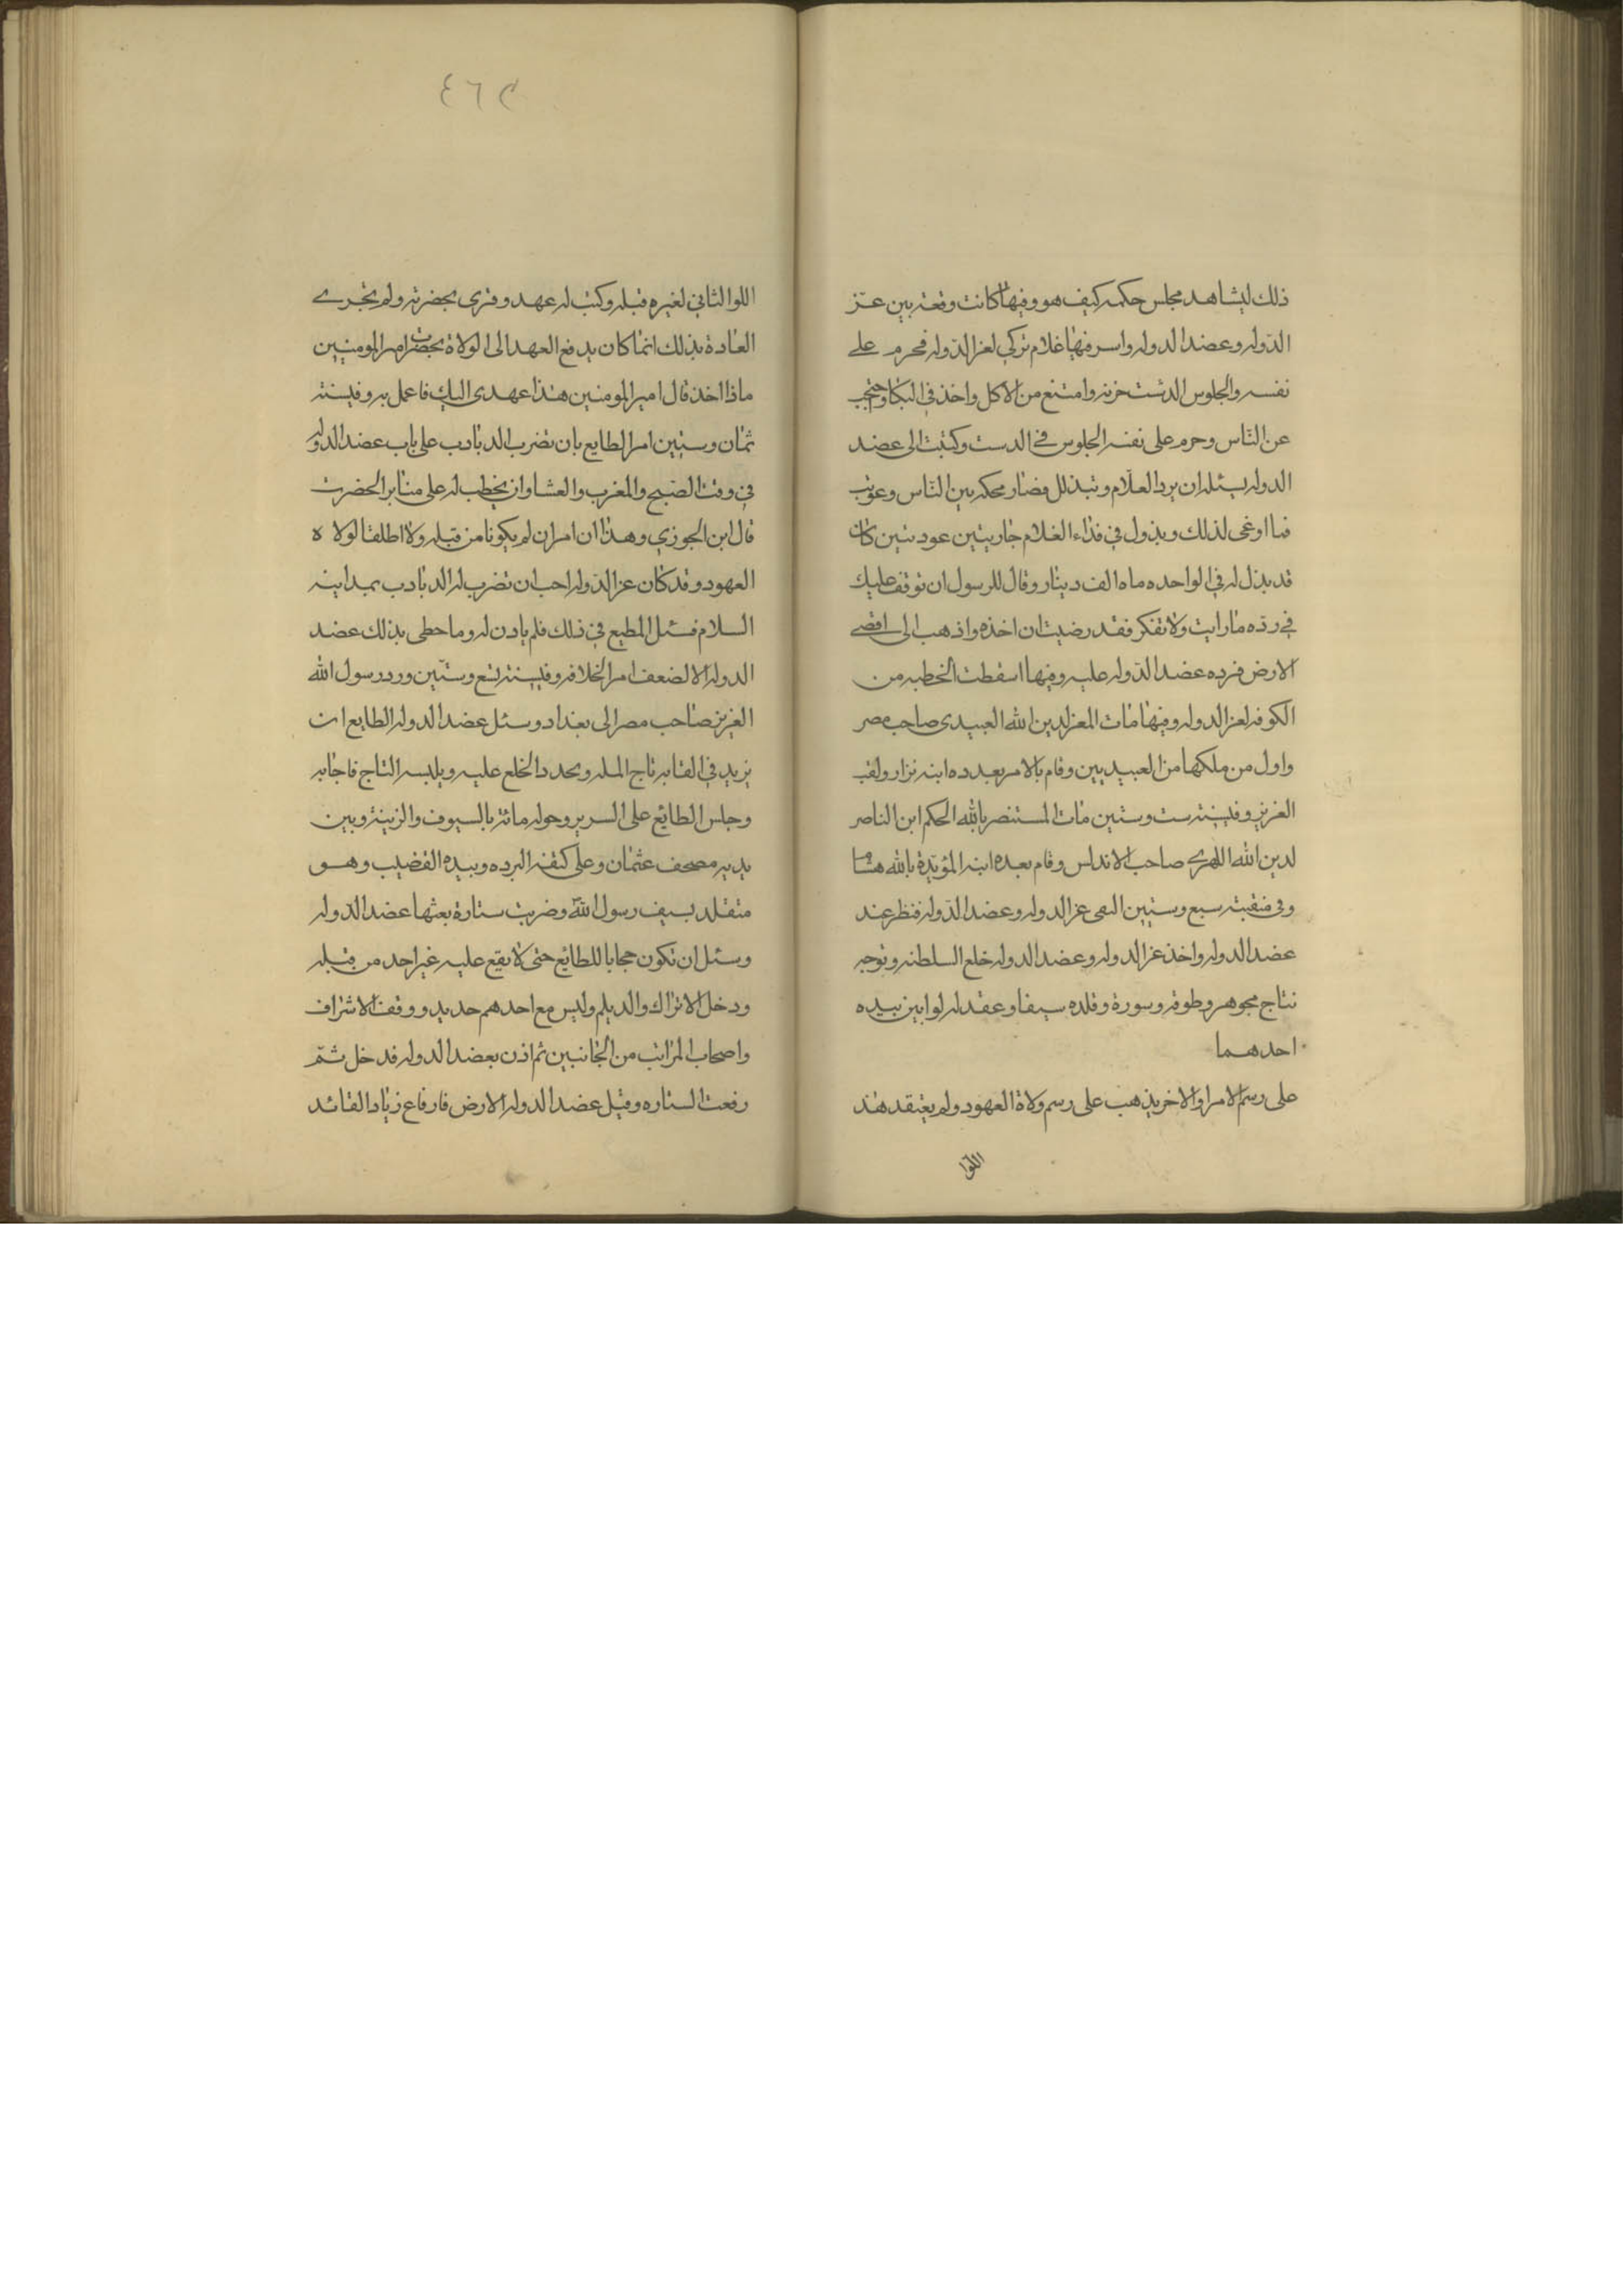 ذلك ليشاهد مجلس حكمه كيف هو وفيها كانت وقعة بين عز
الدوله وعضد الدوله واسر فيها غلام تركي لعز الدوله فحرم على
نفسه والجلوس الدشت حزنه وامتنع من الاكل واخذ في البكا واحتجب
عن الناس وحرم على نفسه الجلوس في الدست وكتبت الى عضد
الدوله يسئله ان يرد العلام وتبذلل فصار محكه بين الناس وعوتب
فما اوغى لذلك وبذول في فذاء الغلام جاريتين عودتين كان
قد بذل له في الواحده ماه الف دينار وقال للرسول ان توقف عليك
في رده ما رايت ولا تفكر فقد رضيت ان اخذه واذهب الى اقصى
الارض فرده عضد الدوله عليه وفيها اسقطت الخطبه من
الكوفه لعز الدوله وفيها مات المعز لدين الله العبيدى صاحب مصر
واول من ملكها من العبيديين وقام بالامر بعده ابنه نزار ولقب
العزيز وفي سنة ست وستين مات المستنصر بالله الحكم ابن الناصر
لدين الله صاحب الاندلس وقام بعده ابنه المؤيدة بالله هشاما
وفي سبع وستين التقى عز الدوله وعضد الدوله فنظر عند
عضد الدوله واخذ عز الدوله وعضد الدوله خلع السلطنه وتوجه
نتاج مجوهر وطوقه وسورة وقلده سيفا وعقد له لوابين بيده
احدهما
على رسم الامرا والاخر يذهب على رسم ولاة العهود ولم يعتقد هذ
اللوا
٤٦٢
اللوا الثاني لغيره قبله وكتب له عهد وقرى بحضرته ولم تجرے
العادة بذلك انما كان يدفع العهد الى الولاة بحضرت امير المومنين
ماذا اخذ قال امير المومنين هذا عهدى اليك فاعمل به وفي سنة
ثمان وستين امر الطايع بان تضرب الدبادب على باب عضد الدوله
في وقت الصبح والمغرب والعشا وان يخطب له على منابر الحضرت
قال ابن الجوزي وهذا ان امران لم يكونا من قبله ولا اطلقا لولاة
العهود وقد كان عز الدوله احب ان تضرب له الدبادب بمداينه
السلام فسئل المطيع في ذلك فلم يادن له وما حظى بذلك عضد
الدوله الا لضعف امر الخلافه وفي سنة تسع وستين ورد رسول الله
العزيز صاحب مصر الى بغداد وسئل عضد الدوله الطايع ان
يزيد في القابه تاج المله ويحدد الخلع عليه ويلبسه التاج فاجابه
وجلس الطايع على السرير وحوله مائة بالسيوف والزينة وبين
يديه مصحف عثمان وعلى كتفه البرده وبيده القضيب وهو
متقلد بسيف رسول الله وضربت ستارة بعثها عضد الدوله
وسئل ان تكون حجابا للطايع حتى لا يقع عليه غير احد من قبله
ودخل الاتراك والديلم وليس مع احدهم حديد ووقف الاشراف
واصحاب المراتب من الجانبين ثم اذن بعضد الدوله فدخل ثم
رفعت الستاره وقبل عضد الدوله الارض فارفاع زياد القائد